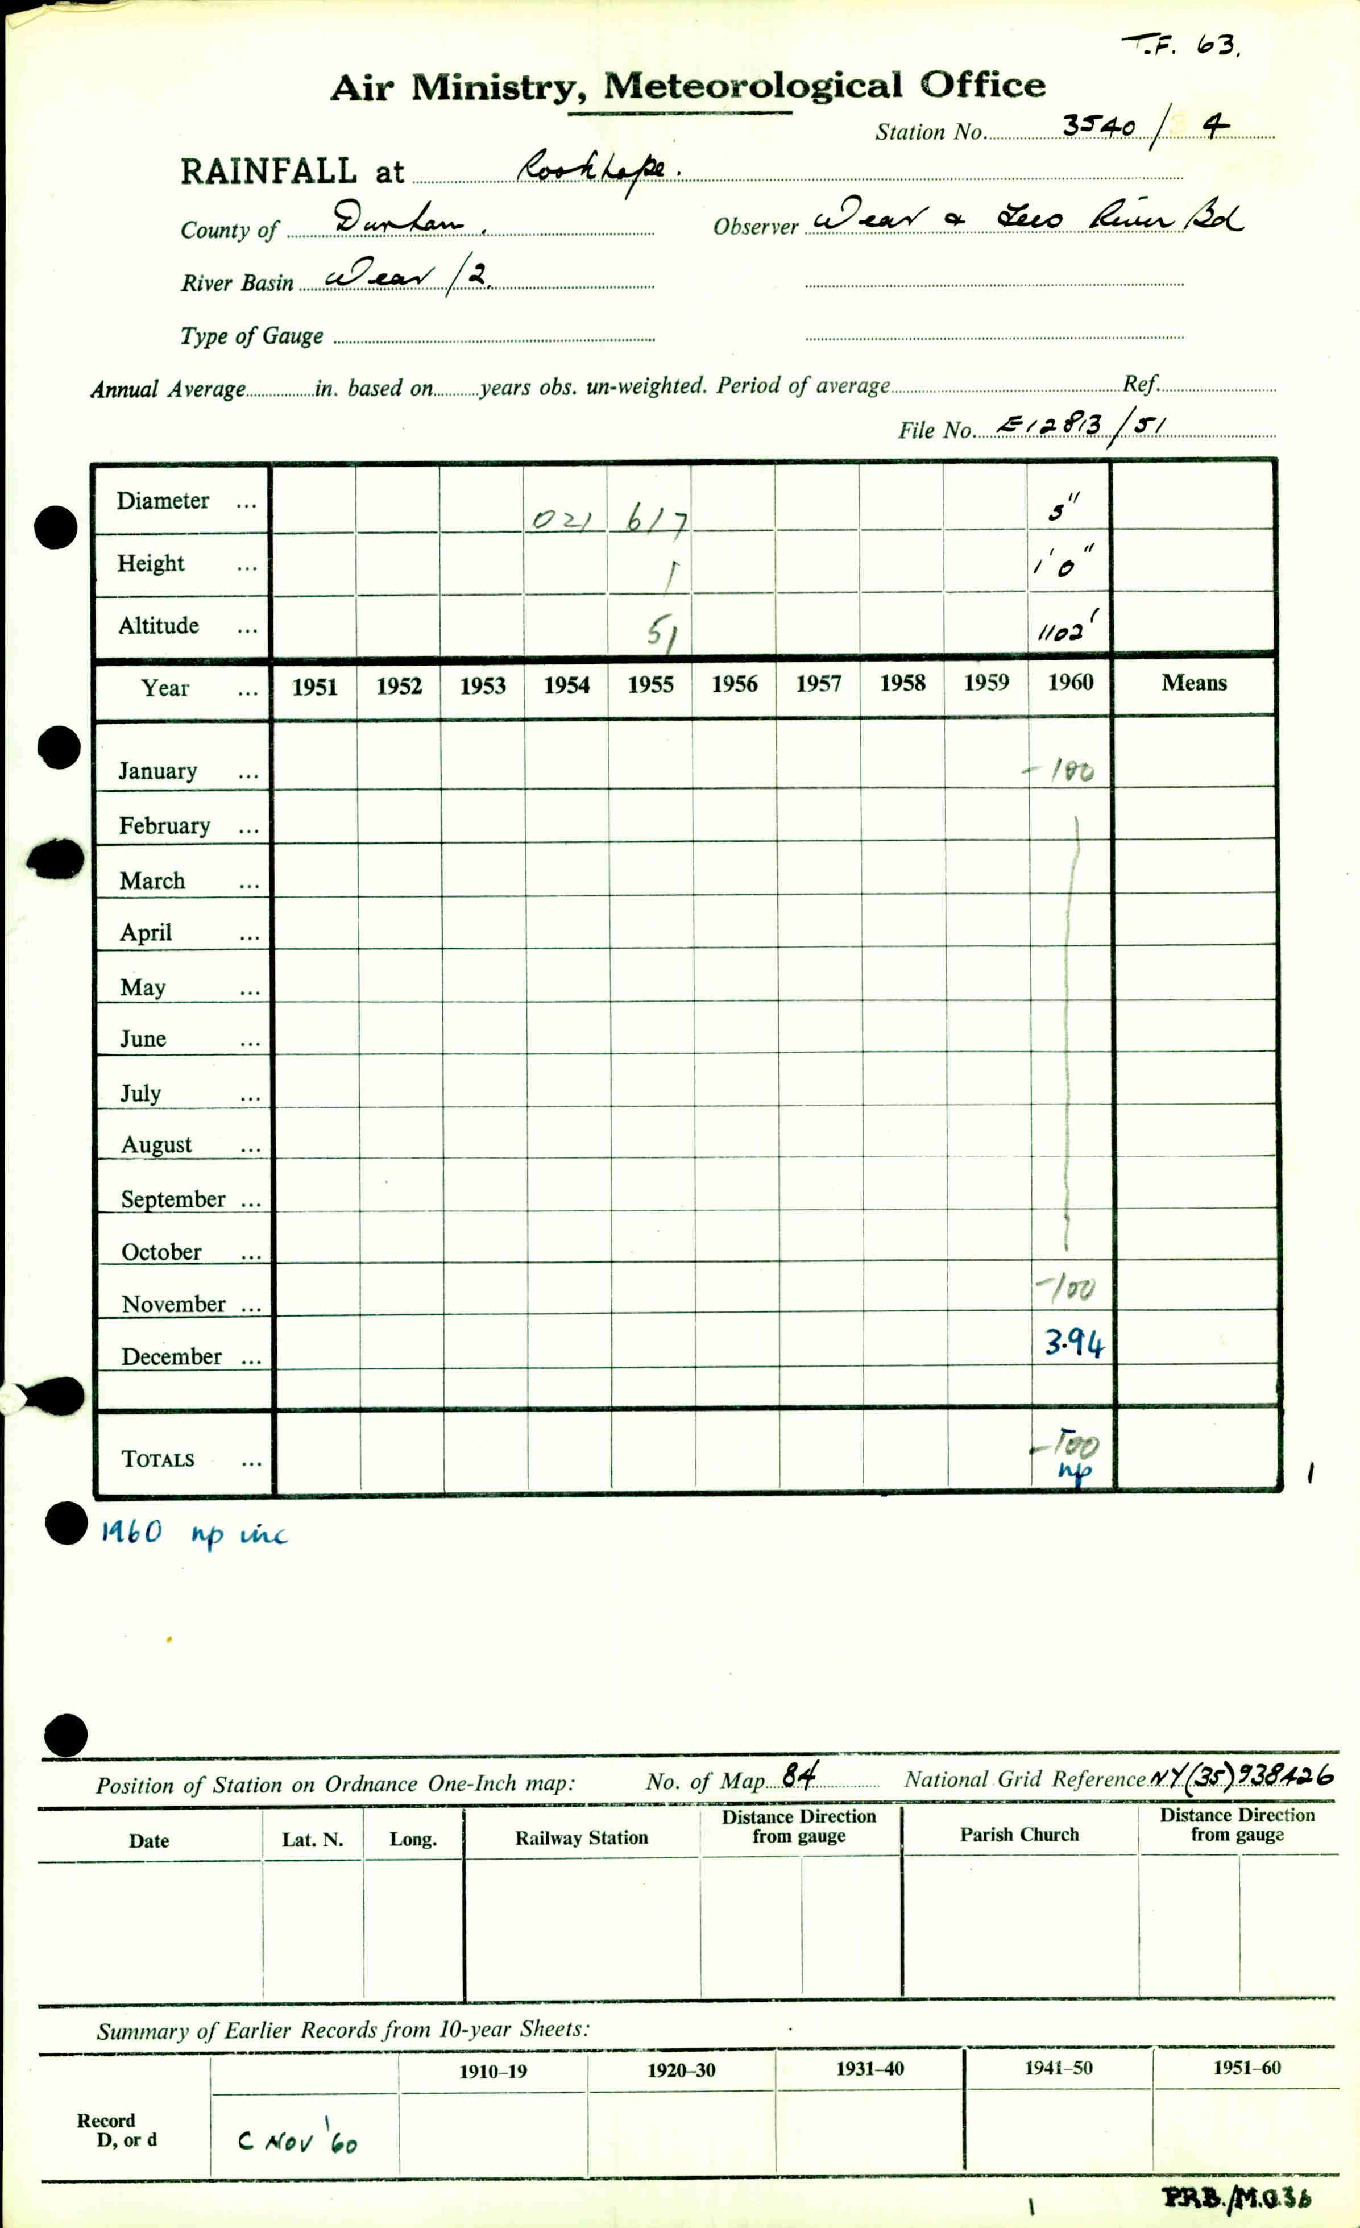 T.F. 63.
Air Ministry, Meteorological Office
Station No. 3540 / 4
RAINFALL at Rookhope.
County of Durham. Observer Wear & Tees River Bd
River Basin Wear /2.
Type of Gauge
Annual Average in. based on years obs. un-weighted. Period of average Ref.
File No. E12813/51
Diameter ... 021 617 5"
Height ... 1 1'0"
Altitude ... 51 1102'
Year ... 1951 1952 1953 1954 1955 1956 1957 1958 1959 1960 Means
January ... -100
February ...
March ...
April ...
May ...
June ...
July ...
August ...
September ...
October ...
November ... -100
December ... 3.94
TOTALS ... -100
np
1
1960 np inc
Position of Station on Ordnance One-Inch map: No. of Map 84 National Grid Reference NY(35)938426
Date Lat. N. Long. Railway Station Distance Direction from gauge Parish Church Distance Direction from gauge
Summary of Earlier Records from 10-year Sheets:
1910-19 1920-30 1931-40 1941-50 1951-60
Record
D, or d C NOV '60
1 P.R.B./M.O.36